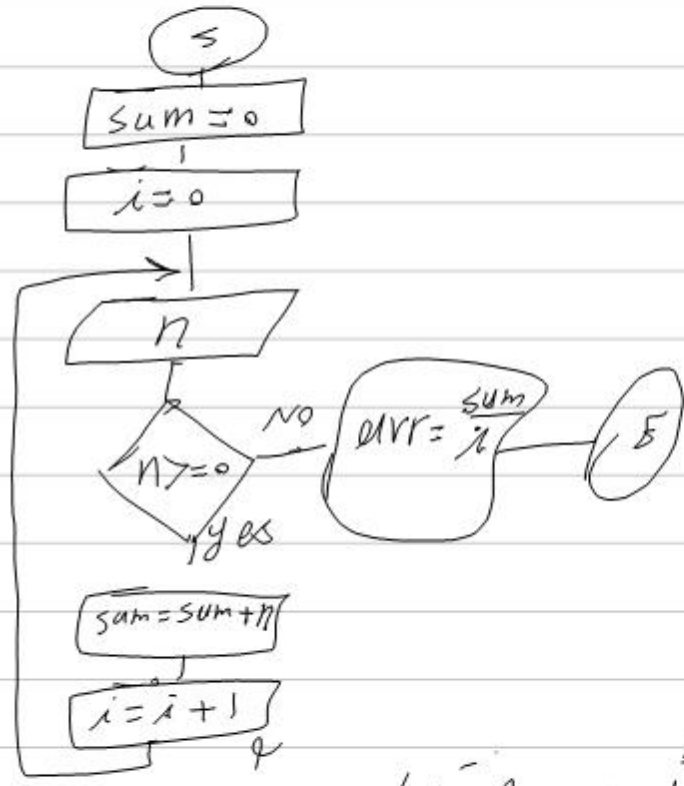 S
sum=0
i=0
n
n>=0
NO
avr= sum
i
E
yes
sum=sum+n
i=i+1